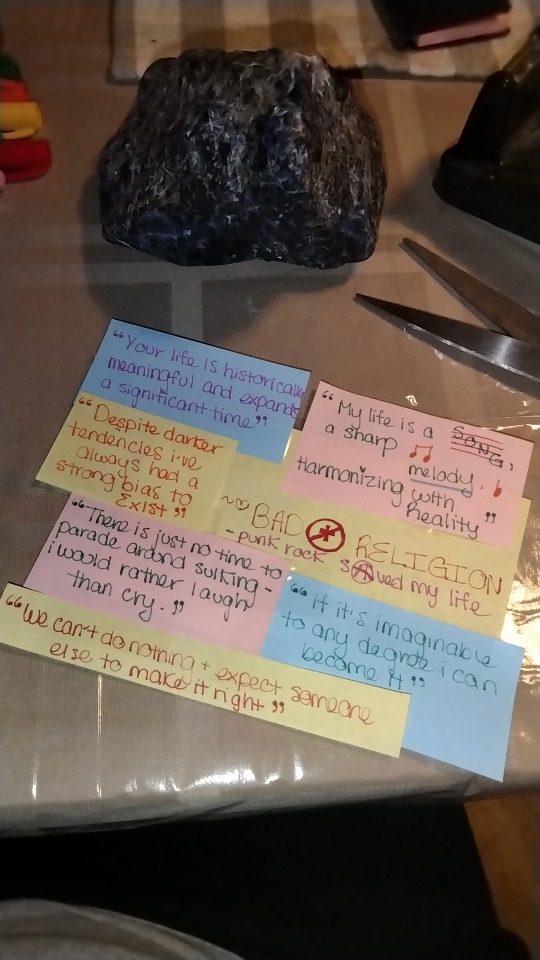 “Your life is historically
meaningful and expands
a significant time”
“Despite darker
tendencies i've
always had a
strong bias to
Exist”
“My life is a SONG,
a sharp melody.
Harmonizing with
Reality”
~♡BAD RELIGION
-punk rock sⒶved my life
“There is just no time to
parade around sulking -
i would rather laugh
than cry.”
“if it's imaginable
to any degree i can
become it”
“We can't do nothing + expect someone
else to make it right”